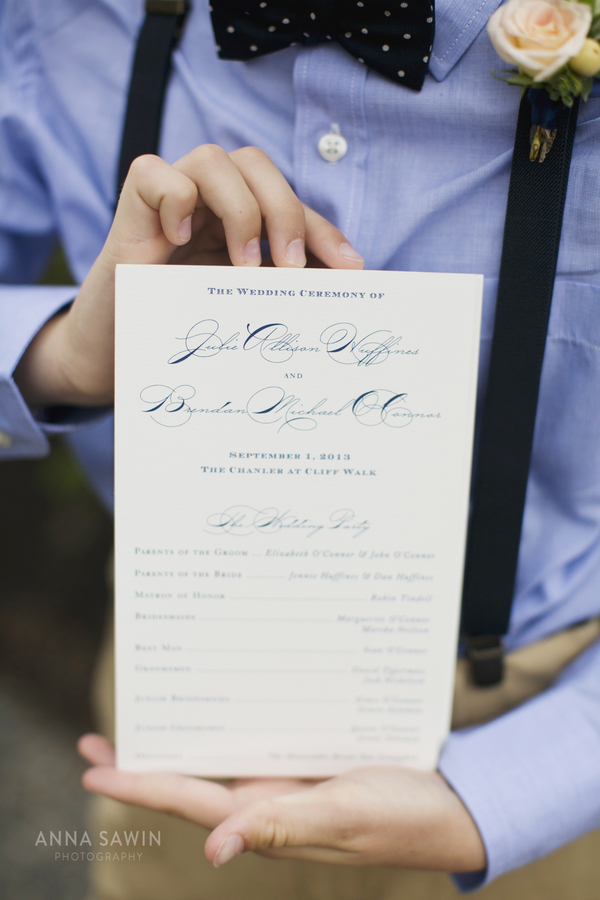 THE WEDDING CEREMONY OF
Julie Allison Huffines
AND
Brendan Michael O'Connor
SEPTEMBER 1, 2013
THE CHANLER AT CLIFF WALK
The Wedding Party
PARENTS OF THE GROOM ... Elizabeth O'Connor & John O'Connor
PARENTS OF THE BRIDE ... Jennie Huffines & Dan Huffines
MATRON OF HONOR ... Robin Tindell
BRIDESMAIDS ... Marguerite O'Connor
BEST MAN ... Sean O'Connor
GROOMSMEN
JUNIOR BRIDESMAIDS ... O'Connor
JUNIOR GROOMSMEN ... O'Connor
ANNA SAWIN
PHOTOGRAPHY